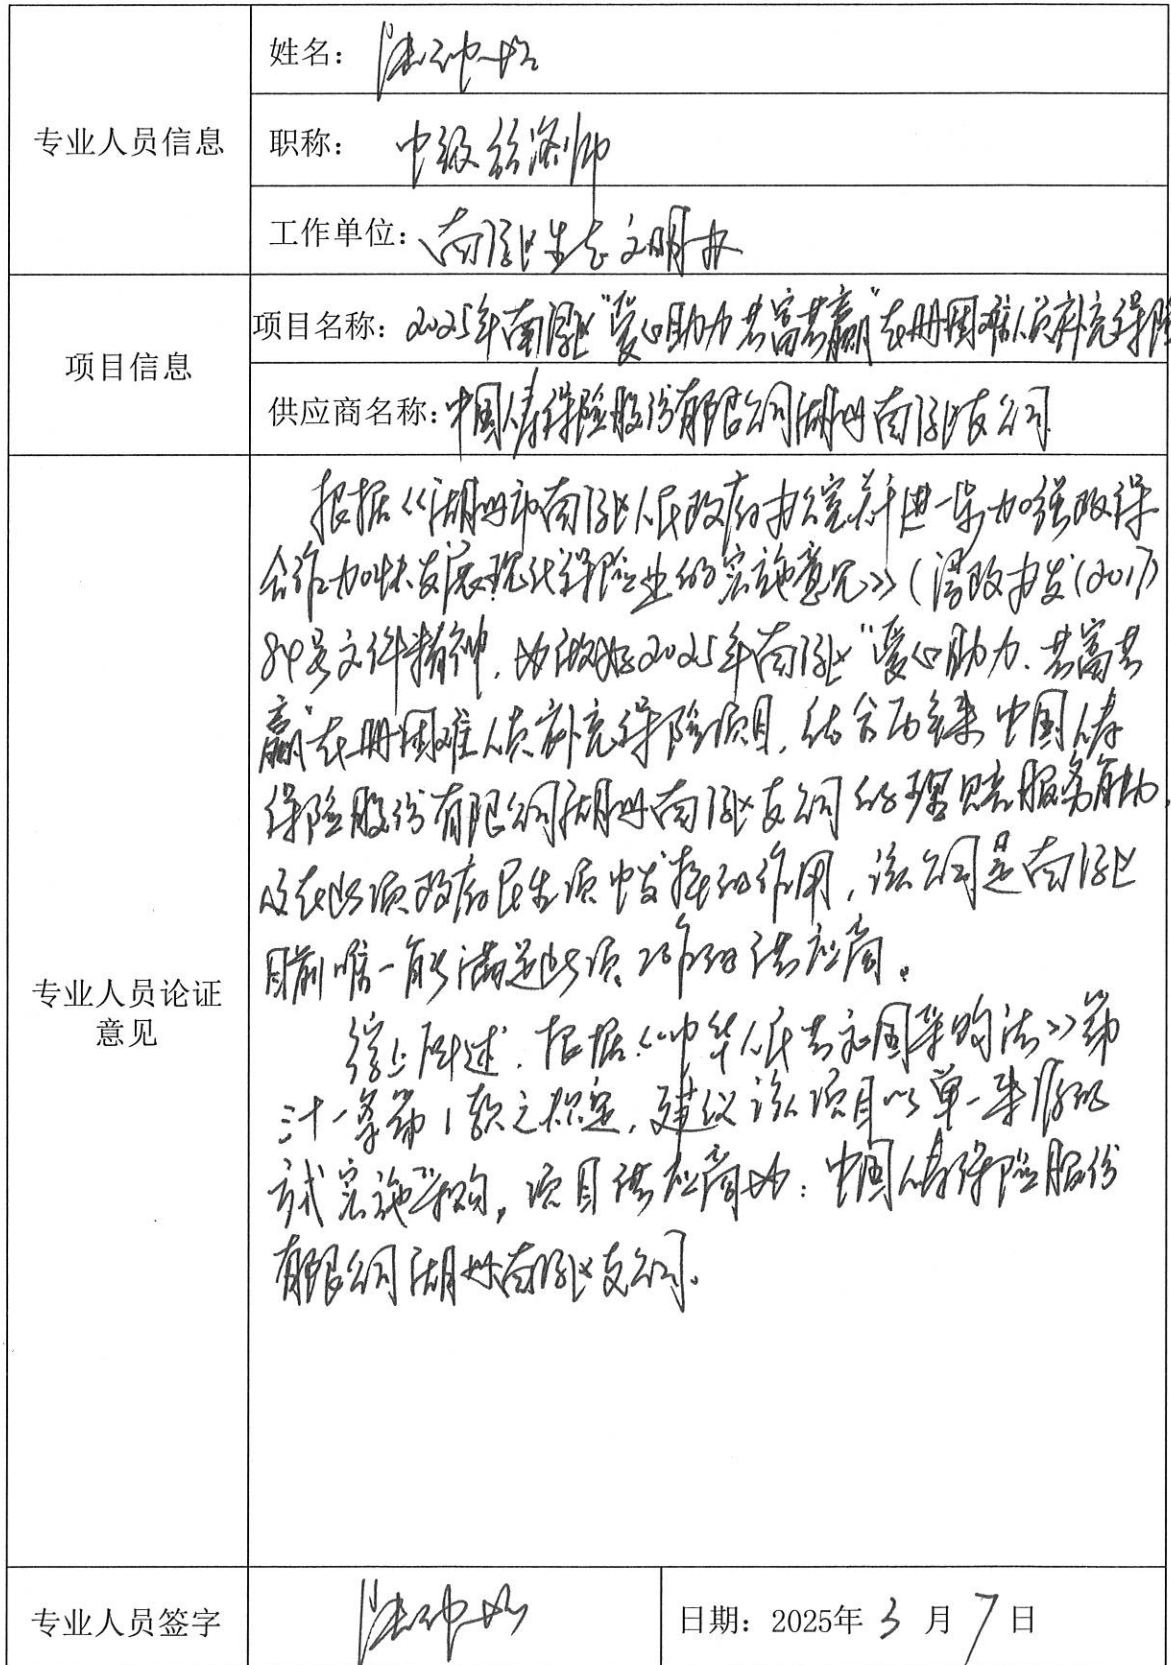 专业人员信息
姓名：
职称：中级经济师
工作单位：南浔区生态文明办
项目信息
项目名称：2025年南浔区“爱心助力 共富共赢”在册困难人员补充保险
供应商名称：中国人寿保险股份有限公司湖州南浔区支公司
专业人员论证
意见
根据《湖州市南浔区人民政府办公室关于进一步加强政保
合作加快发展现代保险业的实施意见》（浔政办发（2017）
84号文件精神，为做好2025年南浔区“爱心助力、共富共
赢”在册困难人员补充保险项目，结合历年来中国人寿
保险股份有限公司湖州南浔区支公司的理赔服务能力，
及在此项政府民生项中发挥的作用，该公司是南浔区
目前唯一能满足此项工作的供应商。
综上所述，根据《中华人民共和国采购法》第
三十一条第1款之规定，建议该项目以单一来源的
方式实施采购，项目供应商为：中国人寿保险股份
有限公司湖州南浔区支公司。
专业人员签字
日期：2025年3月7日